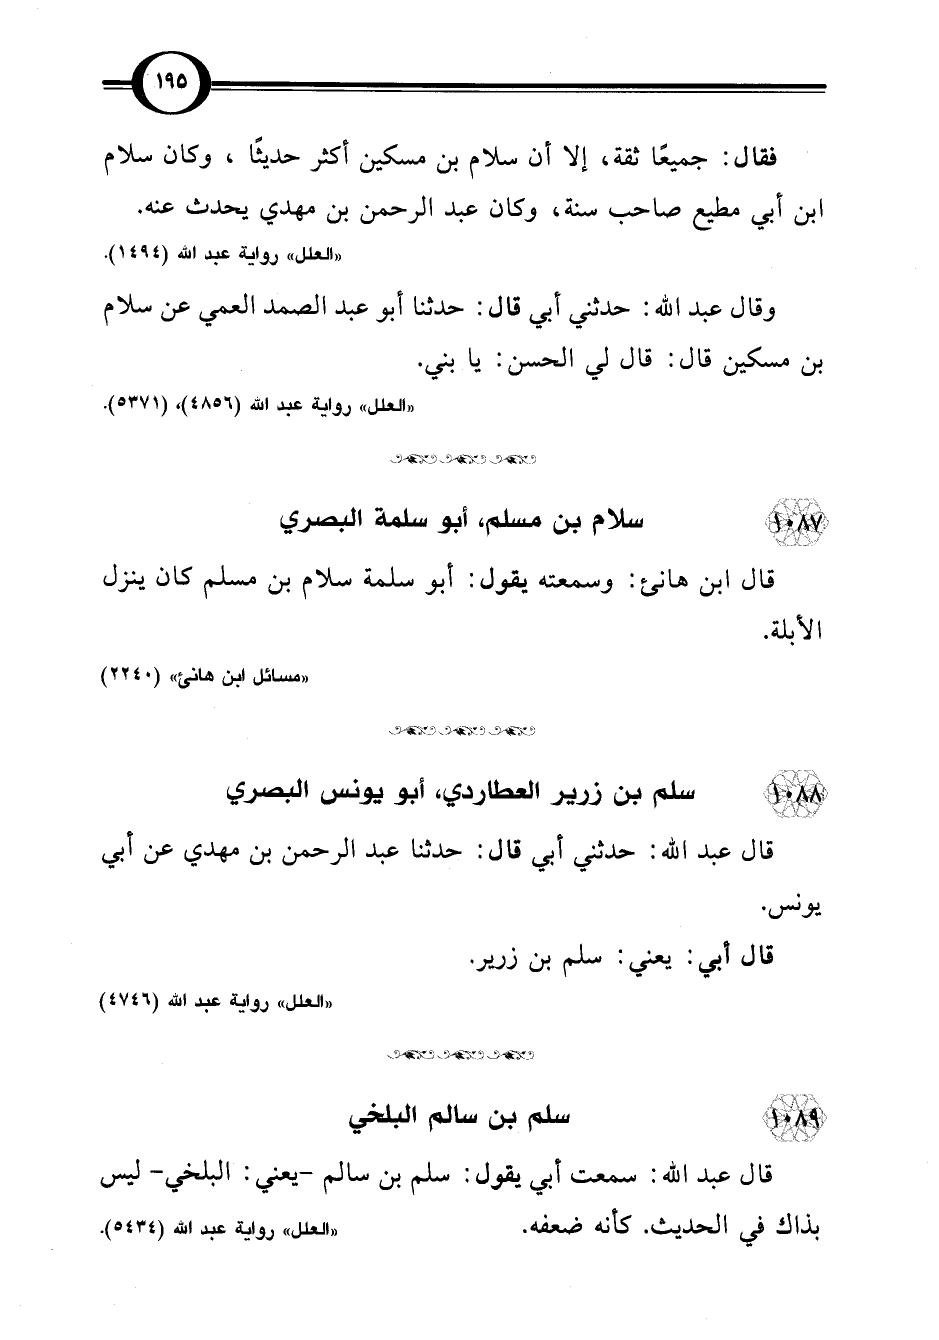 ١٩٥
فقال: جميعًا ثقة، إلا أن سلام بن مسكين أكثر حديثًا ، وكان سلام
ابن أبي مطيع صاحب سنة، وكان عبد الرحمن بن مهدي يحدث عنه.
«العلل» رواية عبد الله (١٤٩٤).
وقال عبد الله: حدثني أبي قال: حدثنا أبو عبد الصمد العمي عن سلام
بن مسكين قال: قال لي الحسن: يا بني.
«العلل» رواية عبد الله (٤٨٥٦)، (٥٣٧١).
١٠٨٧ سلام بن مسلم، أبو سلمة البصري
قال ابن هانئ: وسمعته يقول: أبو سلمة سلام بن مسلم كان ينزل
الأبلة.
«مسائل ابن هانئ» (٢٢٤٠)
١٠٨٨ سلم بن زرير العطاردي، أبو يونس البصري
قال عبد الله: حدثني أبي قال: حدثنا عبد الرحمن بن مهدي عن أبي
يونس.
قال أبي: يعني: سلم بن زرير.
«العلل» رواية عبد الله (٤٧٤٦)
١٠٨٩ سلم بن سالم البلخي
قال عبد الله: سمعت أبي يقول: سلم بن سالم -يعني: البلخي- ليس
بذاك في الحديث. كأنه ضعفه. «العلل» رواية عبد الله (٥٤٣٤).